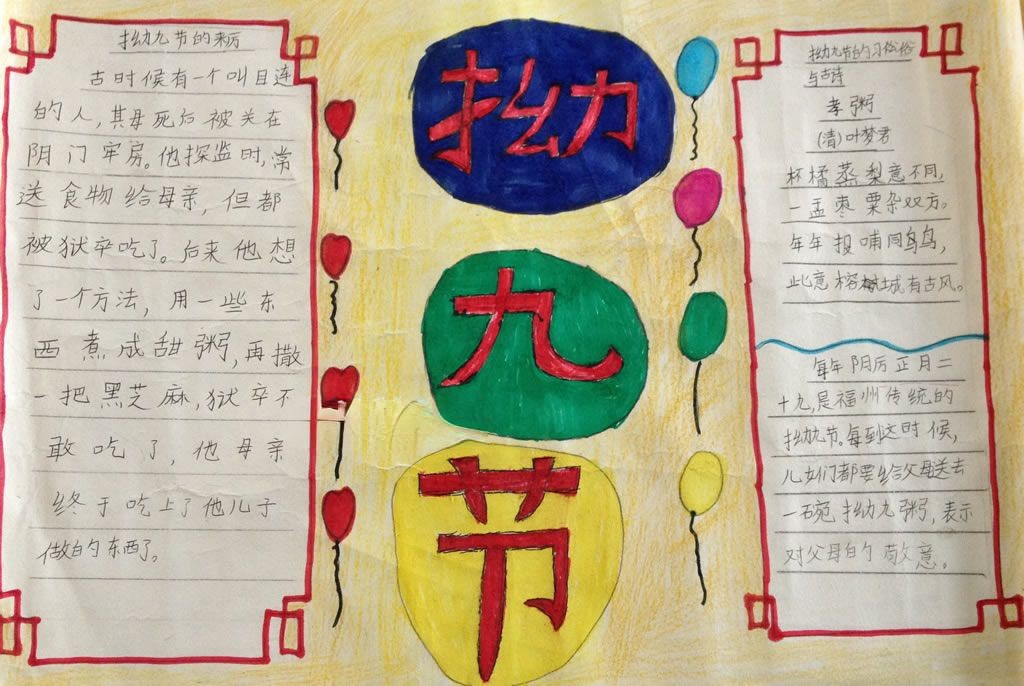 拗九节的来历
古时候有一个叫目连
的人，其母死后被关在
阴门牢房。他探监时，常
送食物给母亲，但都
被狱卒吃了。后来他想
了一个方法，用一些东
西煮成甜粥，再撒
一把黑芝麻，狱卒不
敢吃了，他母亲
终于吃上了他儿子
做的东西了。
拗
九
节
拗九节的习俗
与古诗
孝粥
(清)叶梦君
杯橘蒸梨意不同，
一孟枣粟杂双方。
年年报哺同乌乌，
此意榕城有古风。
每年阴历正月二
十九，是福州传统的
拗九节。每到这时候，
儿女们都要给父母送去
一碗拗九粥，表示
对父母的敬意。